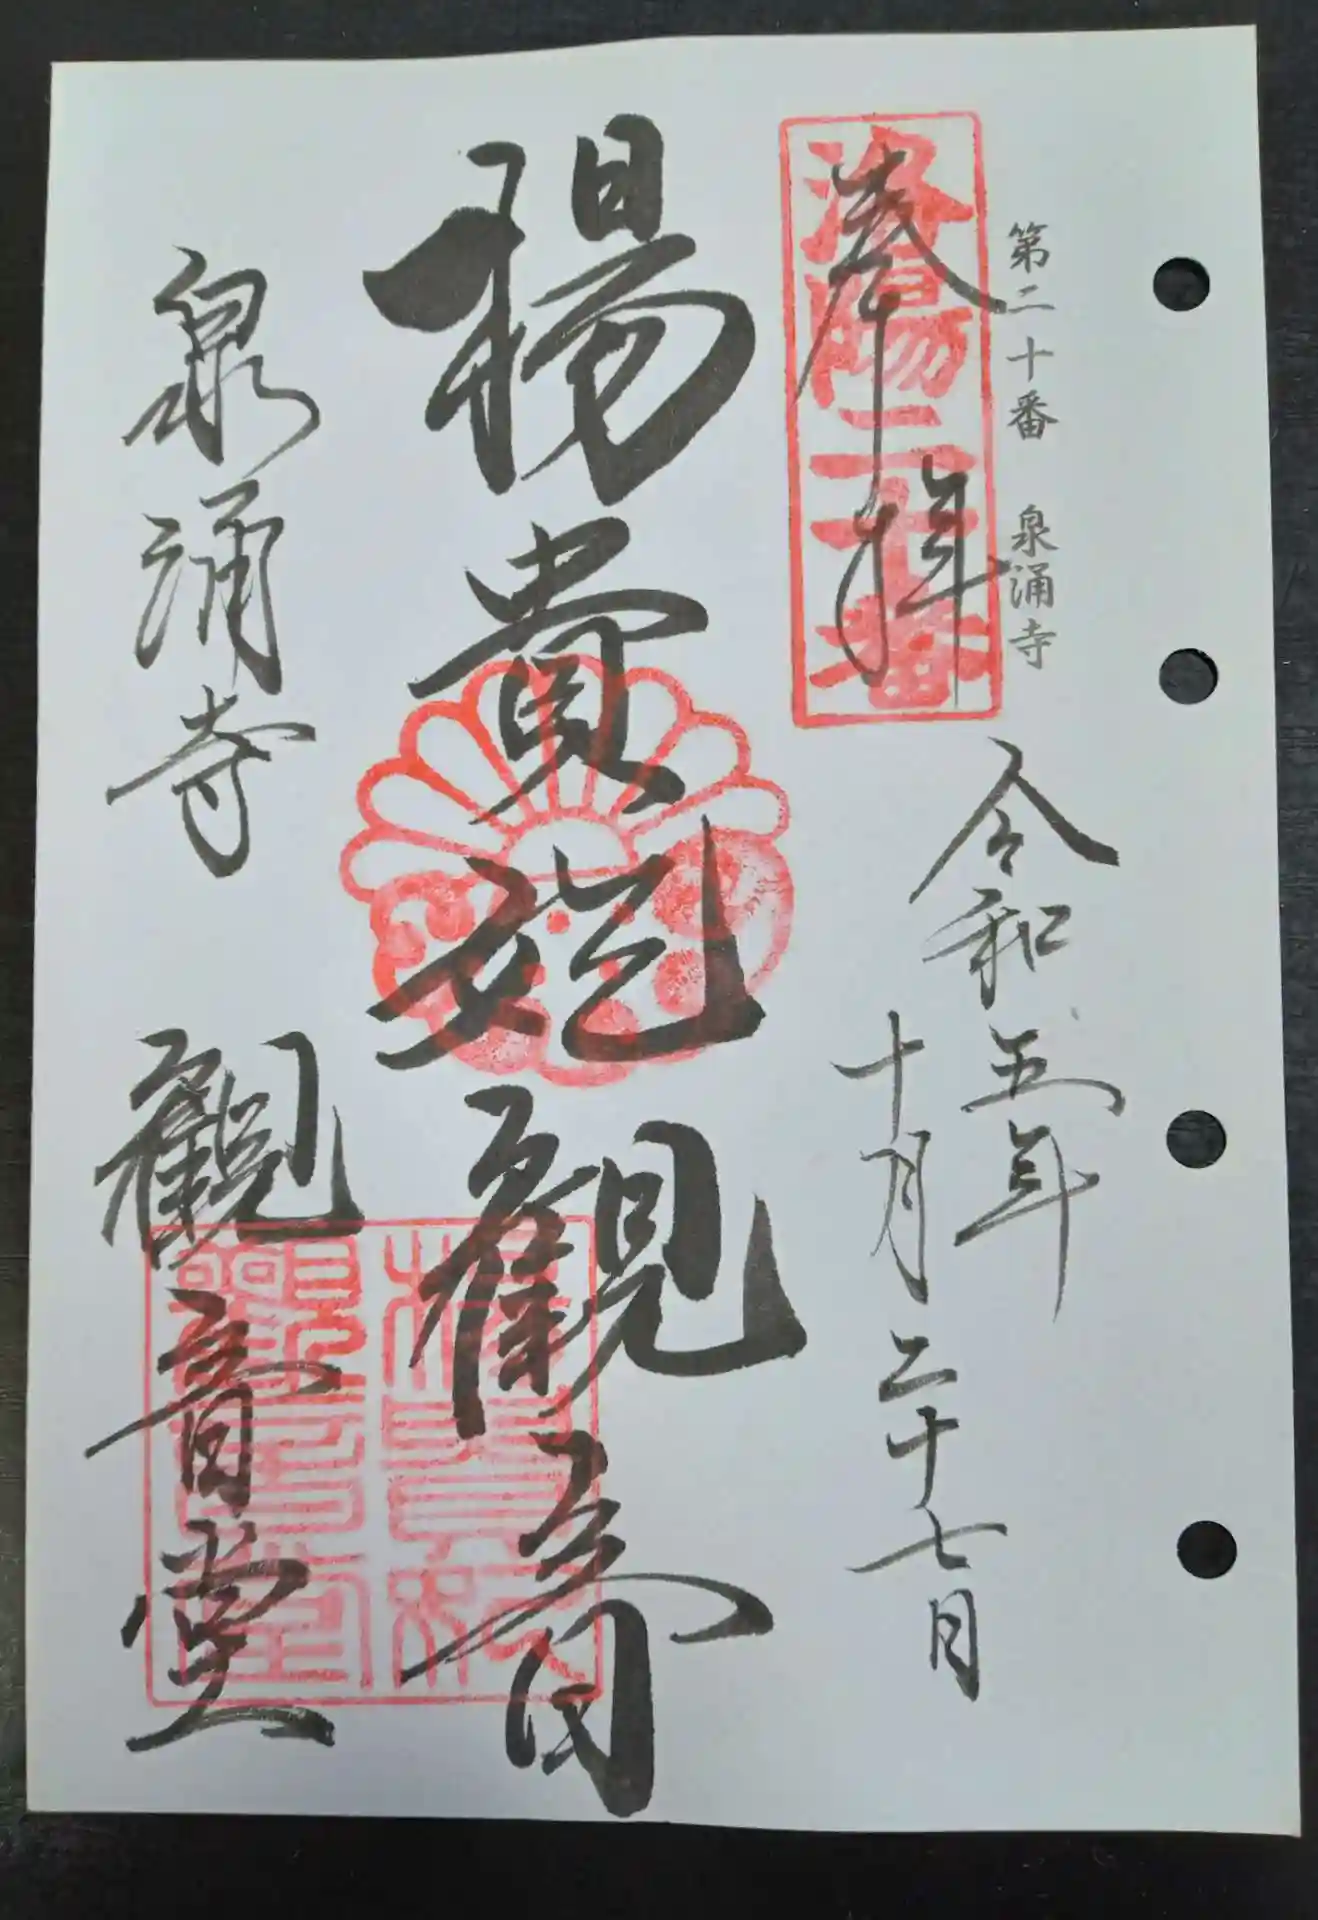 第二十番 泉涌寺
洛陽二十番
奉拝
令和五年
十月二十七日
楊貴妃観音
楊貴妃
観音堂
泉涌寺
観音堂